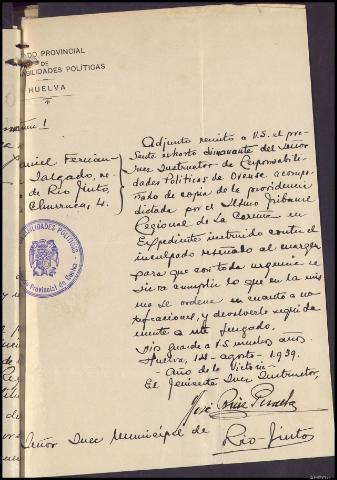 ADO PROVINCIAL
DE
ABILIDADES POLÍTICAS
HUELVA
1
aniel Fernán-
Salgado, ve.
de Rio Tinto,
Churruca, 4.
Adjunto remito a V.S. el pre-
sente exhorto dimanante del Señor
Juez Instructor de Responsabili-
dades Politicas de Orense acompa-
ñado de copia de la providencia
dictada por el Iltmo Tribunal
Regional de La Coruña en
Expediente instruido contra el
inculpado reseñado al margen
para que con toda urgencia se
sirva cumplir lo que en la mis
ma se ordena en cuanto a no
tificaciones, y devolverlo seguida
mente a este Juzgado.
Dios guarde a V.S. muchos años.
Huelva, agosto - 1939.
- Año de la Victoria -
El Teniente Juez Instructor,
José Ruiz
Señor Juez Municipal de
Rio-Tinto
ABILIDADES POLITICAS
Provincial de Huelva